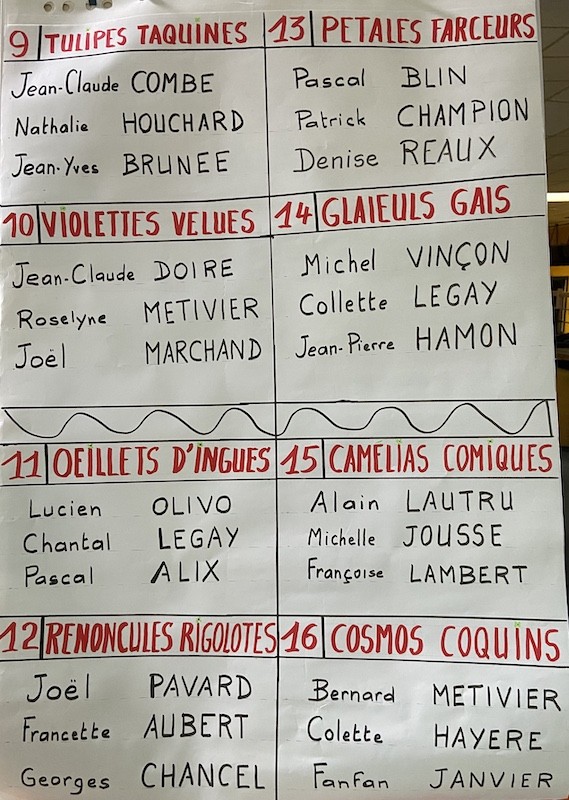 9 TULIPES TAQUINES
Jean-Claude COMBE
Nathalie HOUCHARD
Jean-Yves BRUNEE
10 VIOLETTES VELUES
Jean-Claude DOIRE
Roselyne METIVIER
Joël MARCHAND
11 OEILLETS D'INGUES
Lucien OLIVO
Chantal LEGAY
Pascal ALIX
12 RENONCULES RIGOLOTES
Joël PAVARD
Francette AUBERT
Georges CHANCEL
13 PETALES FARCEURS
Pascal BLIN
Patrick CHAMPION
Denise REAUX
14 GLAIEULS GAIS
Michel VINÇON
Collette LEGAY
Jean-Pierre HAMON
15 CAMÉLIAS COMIQUES
Alain LAUTRU
Michelle JOUSSE
Françoise LAMBERT
16 COSMOS COQUINS
Bernard METIVIER
Colette HAYERE
FanFan JANVIER